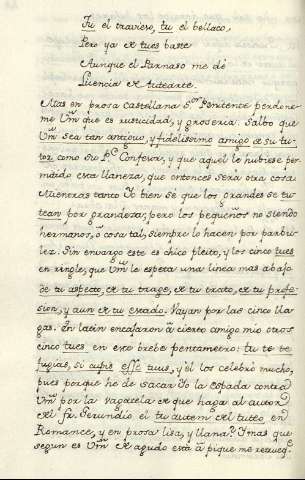 Tu el travieso, tu el bellaco,
Pero ya de tues baste
Aunque el Parnaso me dé
Licencia de tutearte.
Mas en prosa Castellana S.or Penitente perdone-
me Vm que es rusticidad, y groseria. Salbo que
Vm sea tan antiguo, y fidelissimo amigo de su tu-
tor como su P.e Confesor, y que aquel le hubiese per-
mitido esta llaneza, que entonces será otra cosa
Mientras tanto Yo bien sé que los grandes se tu-
tean por grandeza; pero los pequeños no siendo
hermanos, ó cosa tal, siempre lo hacen por parbu-
lez. Sin envargo este es chico pleito, y los cinco tues
en ringle, que Vm le espeta una linea mas abajo
de tu aspecto, de tu trage, de tu trato, de tu profe-
sion, y aun de tu estado. Vayan por las cinco lla-
gas. En latin encajaron á cierto amigo mio otros
cinco tues, en este brebe pentametro: tu te te
fugias, si cupis esse tuus, y él los celebró mucho,
pues porque he de sacar Yo la espada contra
Vm por la vagatela de que haga al autor
de Fr. Gerundio el tu autem del tuteo en
Romance, y en prosa lisa, y llana? Y mas que
segun es Vm de agudo está á pique me resueq.